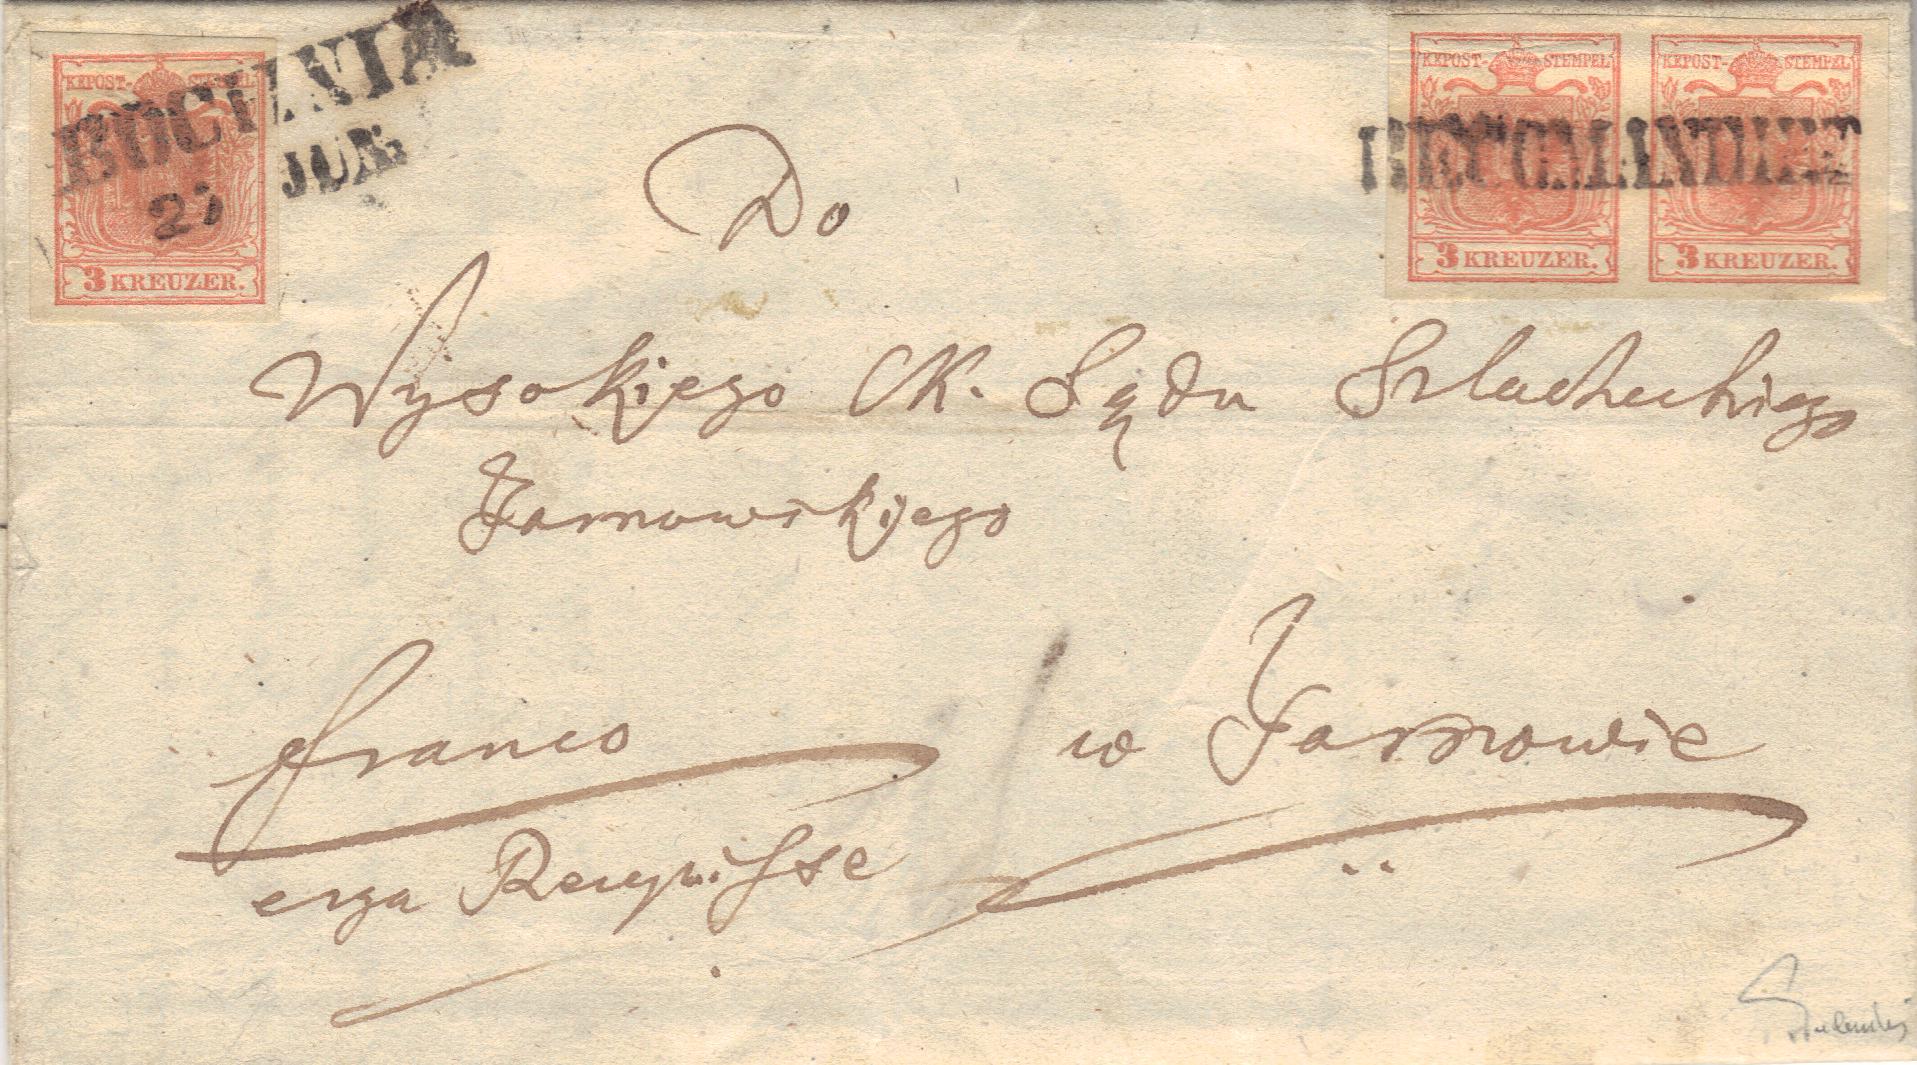 KKPOST-STEMPEL
3 KREUZER.
BOCHNIA
JUN:
KKPOST-STEMPEL KKPOST-STEMPEL
3 KREUZER. 3 KREUZER.
RECOMANDIRT
Do
Wysokiego CK. Sądu Szlacheckiego
Tarnowskiego
franco w Tarnowie
erga Recepisse